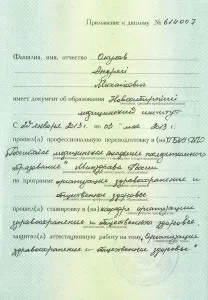 Приложение к диплому № 614007
Фамилия, имя, отчество
Андрей
имеет документ об образовании Новосибирский
медицинский институт
С 22 января 2013 г. по 03 мая 2013 г.
прошел(а) профессиональную переподготовку в (на) ГБОУ ДПО
медицинская академия последипломного
образования" Минздрава России
по программе организация здравоохранения и
общественное здоровье
прошел(а) стажировку в (на) кафедре организации
здравоохранения и общественного здоровья
защитил(а) аттестационную работу на тему Организация
здравоохранения и общественное здоровье